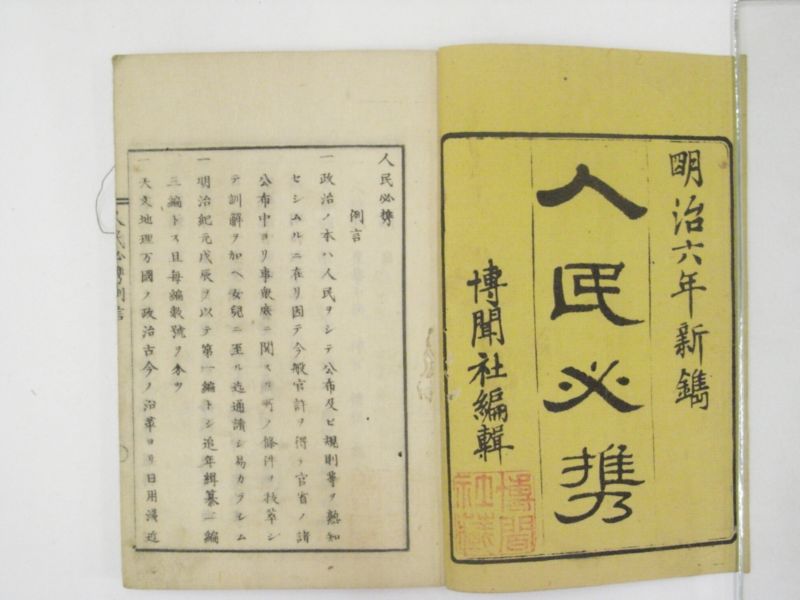 明治六年新鐫
人民必携
博聞社編輯
博聞
社蔵
人民必携
例言
一政治ノ本ハ人民ヲシテ公布及ビ規則等ヲ熟知
セシムルニ在リ因テ今般官許ヲ得テ官省ノ諸
公布中ヨリ事衆庶ニ関スル所ノ條件ヲ抜萃シ
テ訓解ヲ加ヘ女兒ニ至ル迄通讀シ易カラシム
一明治紀元戊辰ヲ以テ第一編トシ追年緝纂二編
三編トス且每編數號ヲ分ツ
一天文地理万國ノ政治古今ノ沿革ヨリ日用淺近
人民必携例言